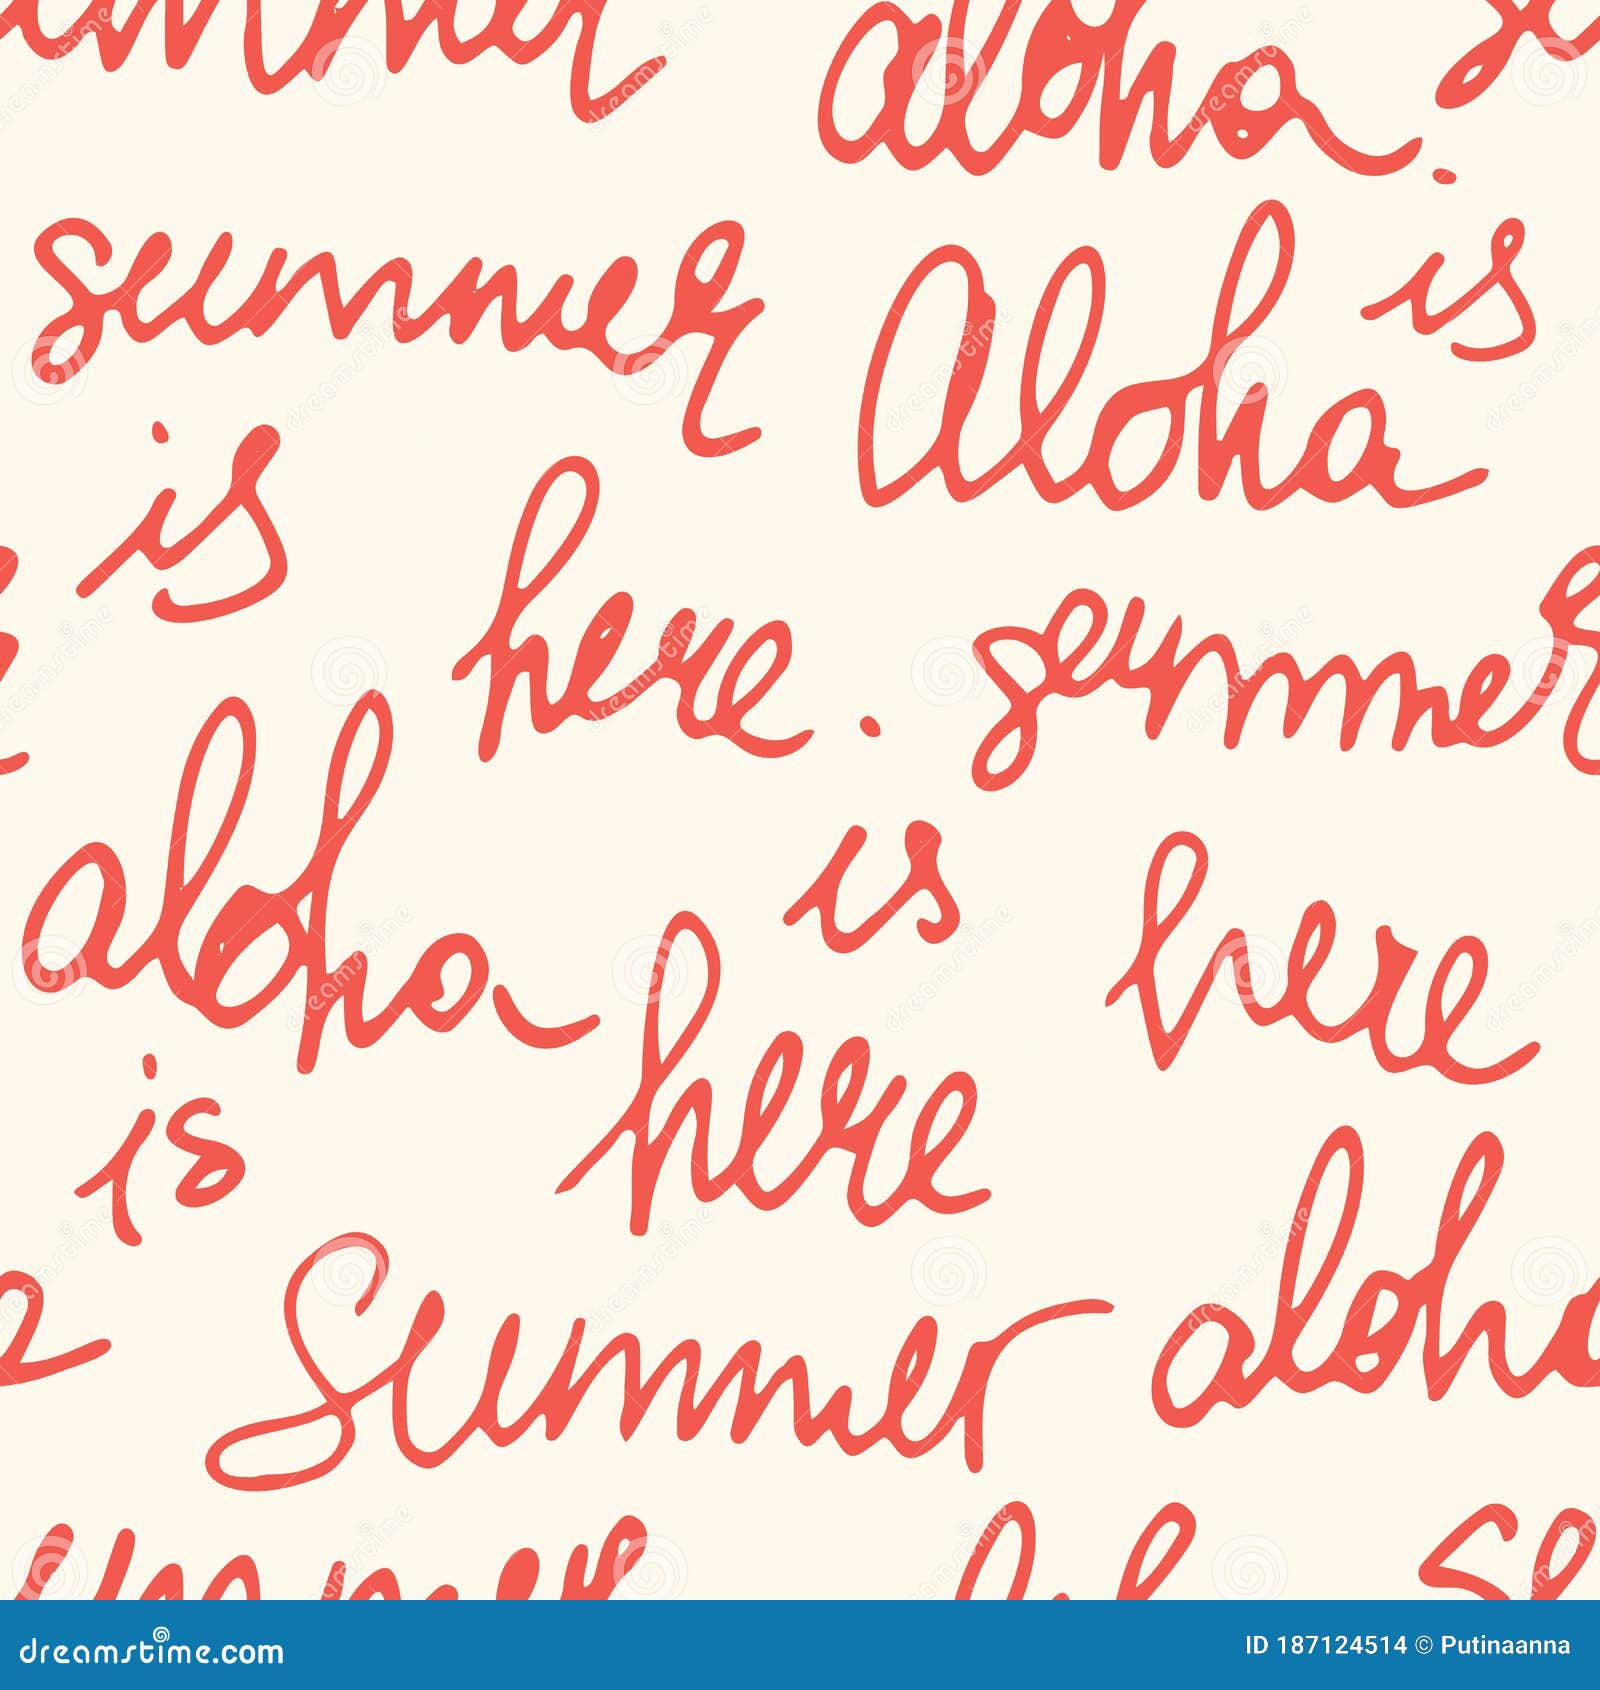 aloha
summer
Aloha is
is
here
summer
aloha
is
here
here
is
aloha
Summer
dreamstime.com
ID 187124514 © Putinaanna